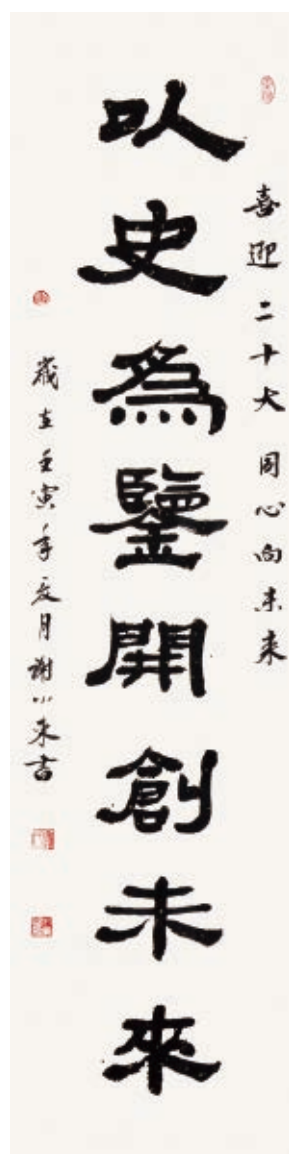 喜迎二十大 同心向未来
以史為鑒開創未來
歲在壬寅年夏月謝小来書